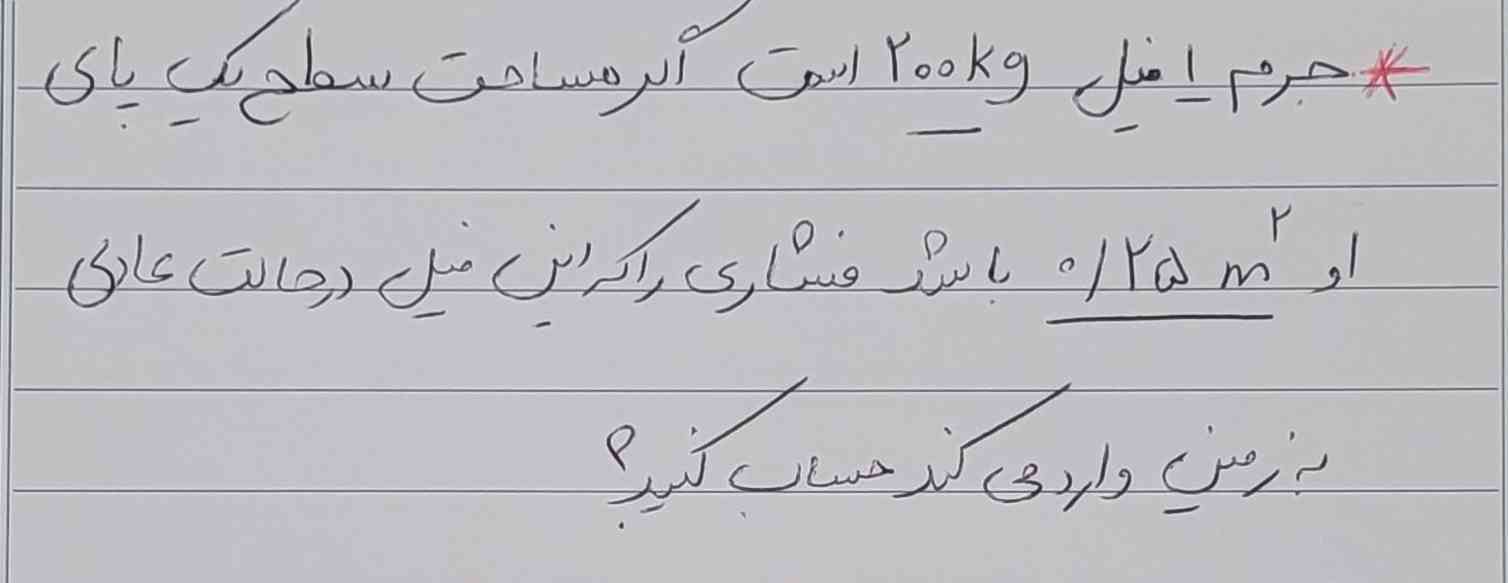 * جرم ۱ فیل ۲۰۰kg است اگر مساحت سطح یک پای
او ۰/۲۵ m² باشد فشاری را که این فیل در حالت عادی
به زمین وارد می کند حساب کنید؟